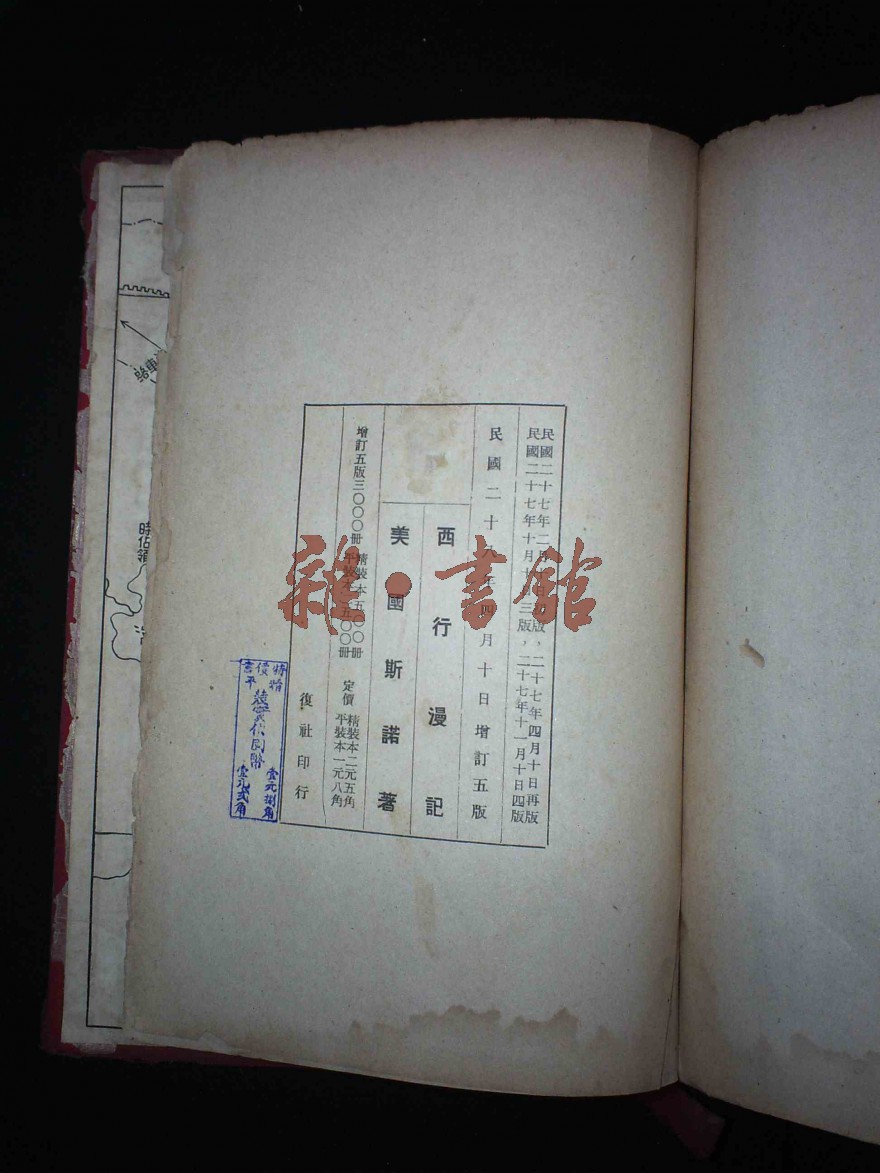 民國二十七年二月十日初版，二十七年四月十日再版
民國二十七年十月十日三版，二十七年十一月十日四版
民國二十九年四月十日增訂五版
西行漫記
美國斯諾著
增訂五版三〇〇〇冊
精裝本五〇〇冊
平裝本二五〇〇冊
定價
精裝本二元五角
平裝本一元八角
復社印行
雜·書館
特價
精
平
壹元捌角
時佔領